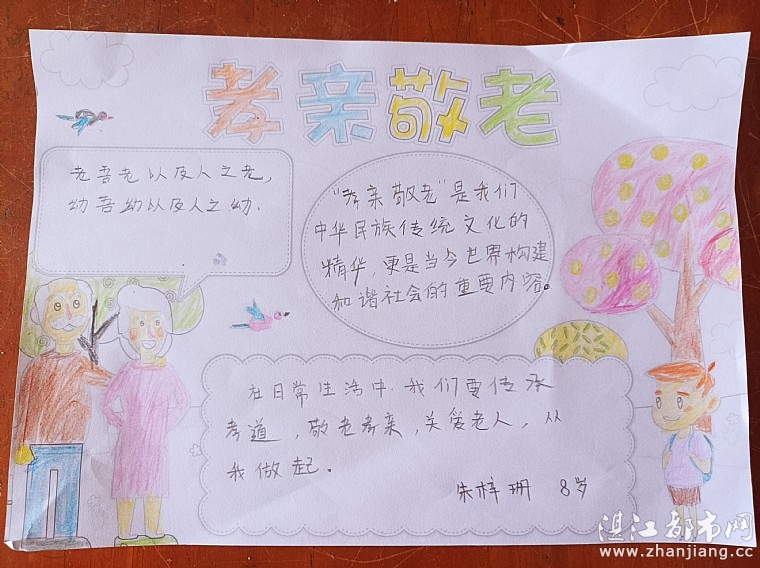 孝亲敬老
老吾老以及人之老，
幼吾幼以及人之幼.
"孝亲敬老"是我们
中华民族传统文化的
精华，更是当今世界构建
和谐社会的重要内容。
在日常生活中.我们要传承
孝道，敬老孝亲，关爱老人，从
我做起。
朱梓珊 8岁
湛江都市网
www.zhanjiang.cc